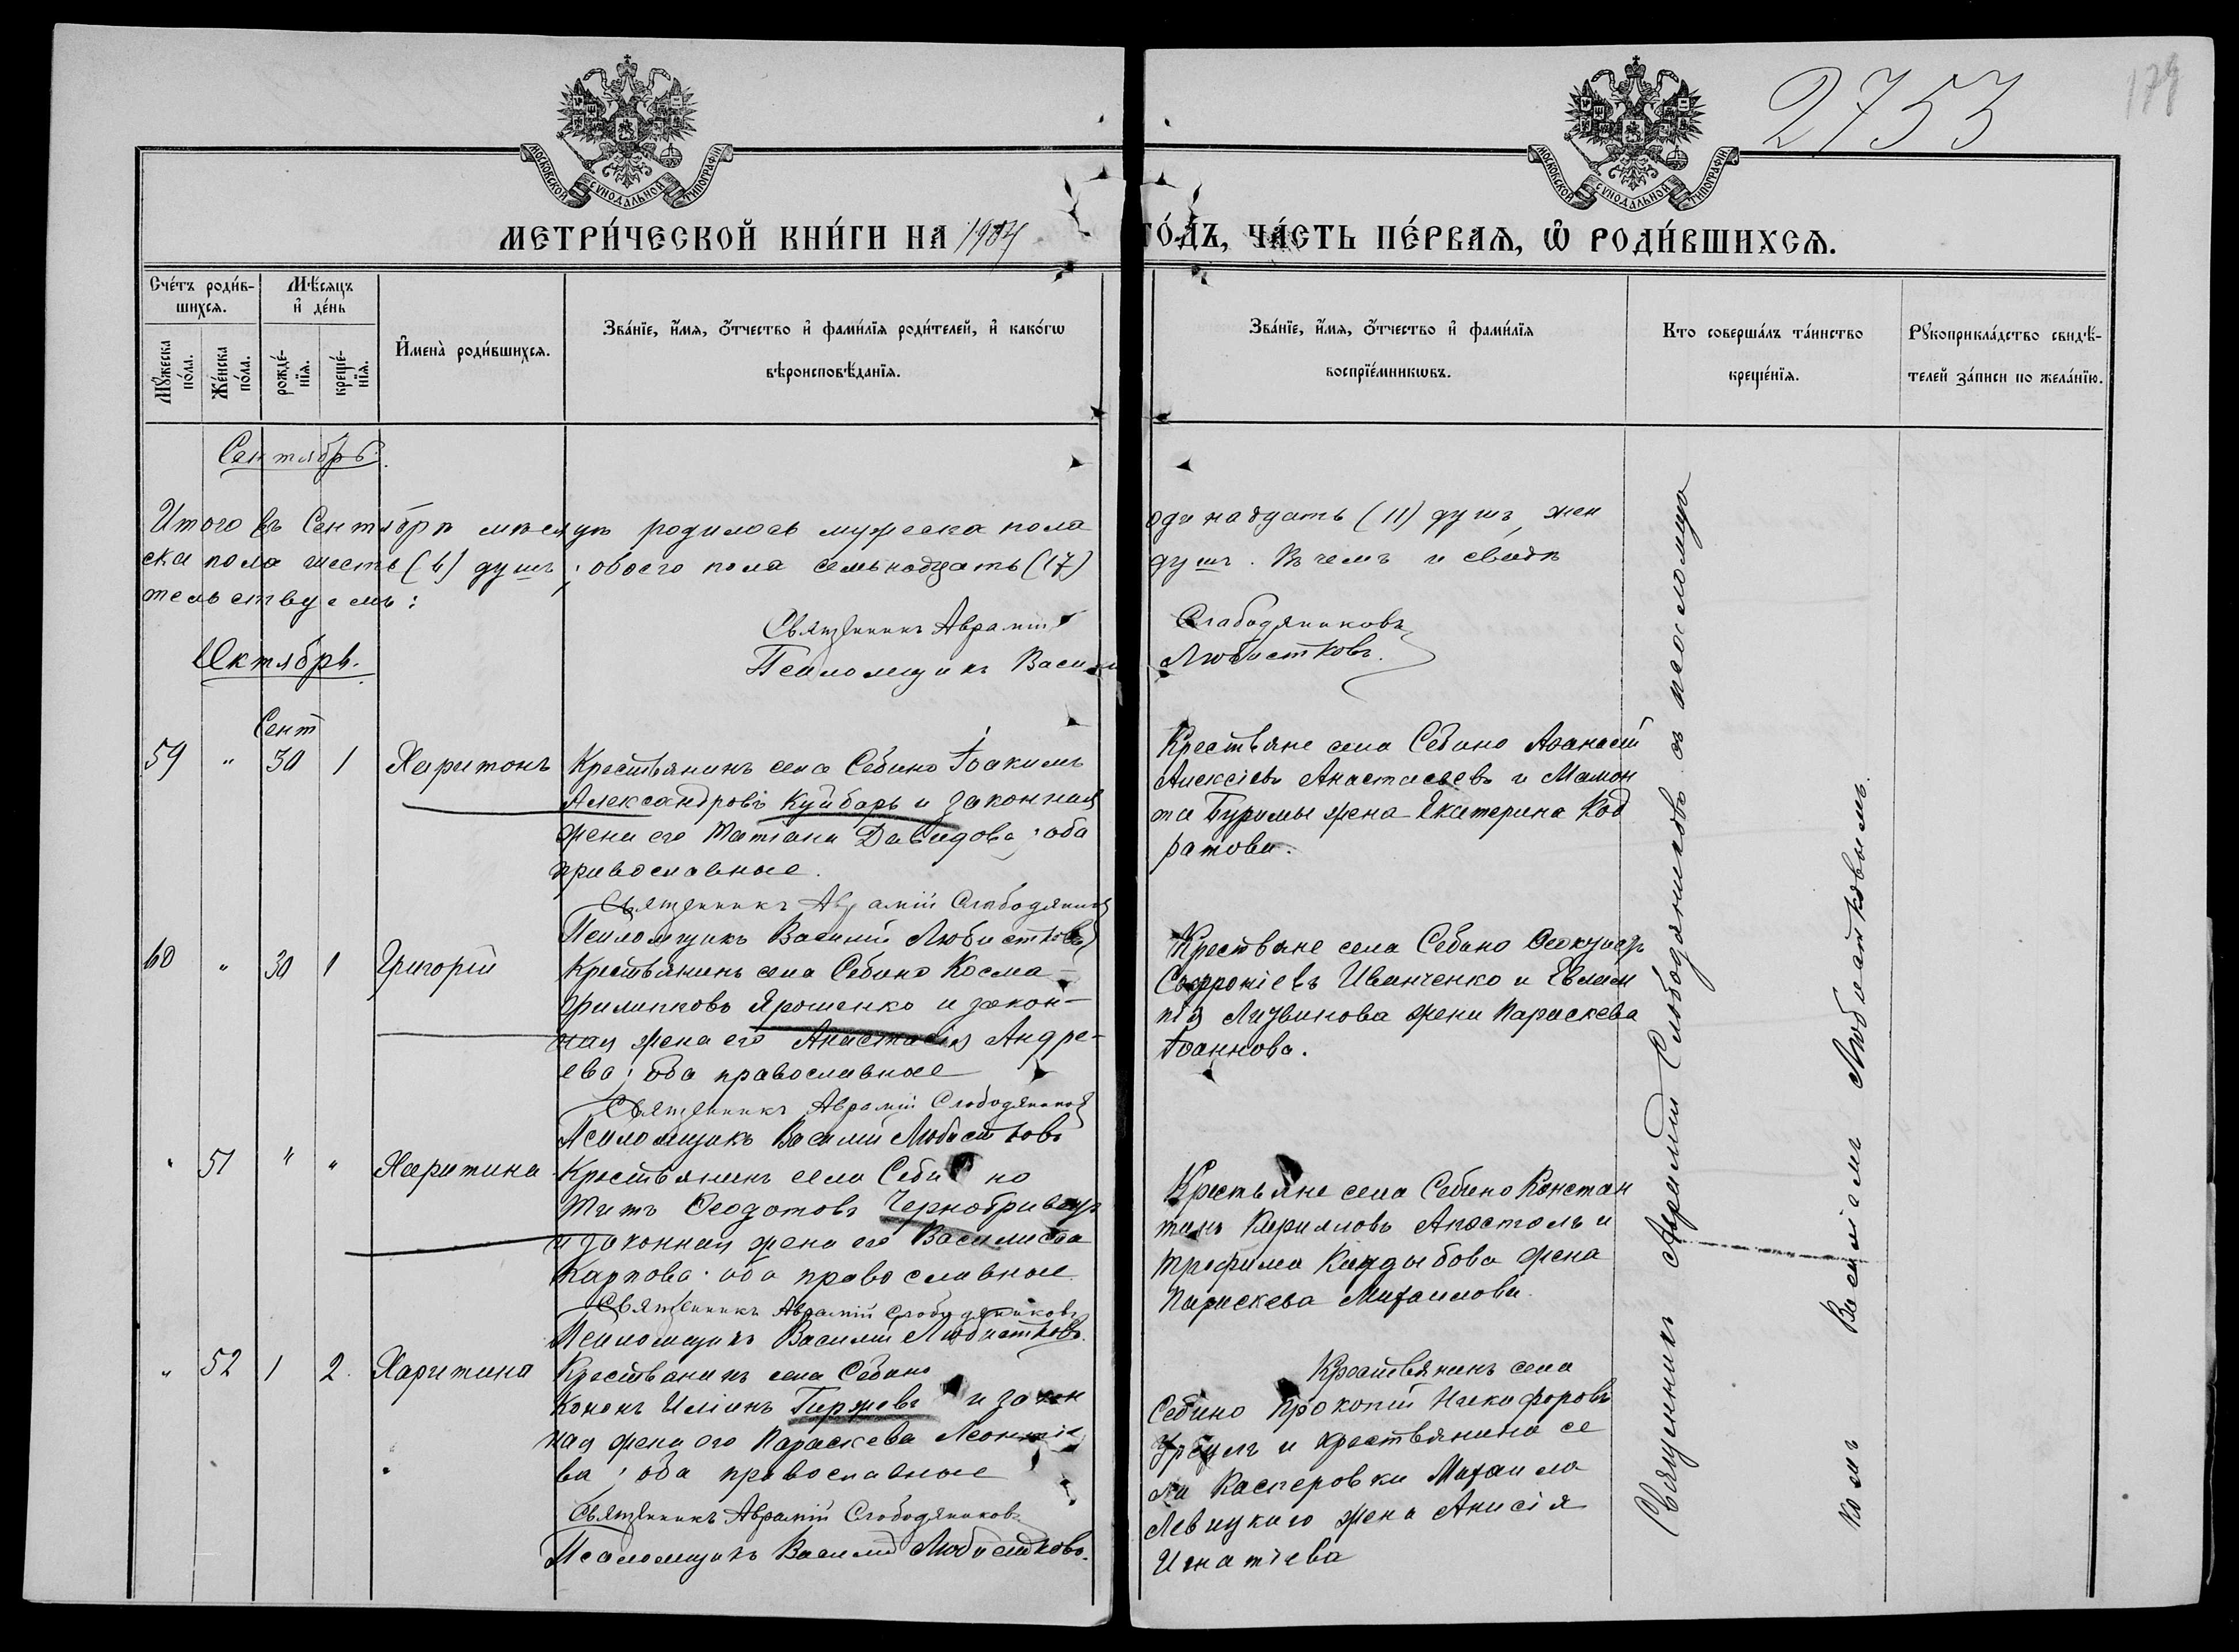 2753
179
МОСКОВСКОЙ СѴНОДАЛЬНОЙ ТИПОГРАФІИ
МОСКОВСКОЙ СѴНОДАЛЬНОЙ ТИПОГРАФІИ
МЕТРИ́ЧЕСКОЙ КНИ́ГИ НА 1904
ГО́ДЪ, ЧА́СТЬ ПЕ́РВАѦ, Ѡ҆ РОДИ́ВШИХСѦ.
Сче́тъ роди́в-
шихсѧ.
Мѣ́сѧцъ
и҆ де́нь
Мꙋ́жеска по́ла.
Же́нска по́ла.
рожде́-
нїѧ.
креще́-
нїѧ.
И҆мена̀ роди́вшихсѧ.
Зва́нїе, и҆́мѧ, ѻ҆́тчество и҆ фами́лїѧ роди́телей, и҆ како́гѡ
вѣроисповѣ́данїѧ.
Зва́нїе, и҆́мѧ, ѻ҆́тчество и҆ фами́лїѧ
воспрїе́мникѡвъ.
Кто соверша́лъ та́инство
креще́нїѧ.
Рꙋкоприкла́дство свидѣ́-
телей за́писи по жела́нїю.
Сентябрь.
Итого въ Сентябрѣ мѣсяцѣ родилось мужеска пола
одинадцать (11) душъ, жен
ска пола шесть (6) душъ; обоего пола семьнадцать (17)
душъ. Въ чемъ и свидѣ
тельствуемъ:
Священникъ Аврамій
Слабодяниковъ
Псаломщикъ Васи
Любистковъ.
Октябрь.
Сент
59 " 30 1 Харитонъ
Крестьянинъ села Себино Іоакимъ
Александровъ Куйбарь и законная
жена его Татіана Давидова; оба
православные.
Священникъ Аврамій Слободяниковъ
Псаломщикъ Василий Любистковъ
Крестьяне села Себино Аѳанасій
Алексіевъ Анастасьевъ и Мамон
та Буримы жена Екатерина Код
ратова.
60 " 30 1 Григорій
Крестьянинъ села Себино Косма
Филипповъ Ярошенко и закон-
ная жена его Анастасія Андре-
ева; оба православные
Священникъ Аврамій Слободяниковъ
Псаломщикъ Василий Любистковъ
Крестьяне села Себино
Софроніевъ Иванченко и Евлам
пія Лизвинова жена Параскева
Іоаннова.
" 51 " " Харитина
Крестьянинъ села Себино
Титъ Ѳеодотовъ Чернобривецъ
и законная жена его Василисса
Карпова; оба православные
Священникъ Аврамій Слободяниковъ
Псаломщикъ Василий Любистковъ.
Крестьяне села Себино Констан
тинъ Кириловъ Апостолъ и
Трофима Кандыбова жена
Параскева Михаилова.
" 52 1 2. Харитина
Крестьянинъ села Себино
Кононъ Иліинъ Гиржевъ и закон
ная жена его Параскева Леонтіе
ва; оба православные
Священникъ Аврамій Слободяниковъ
Псаломщикъ Василий Любистковъ.
Крестьянинъ села
Себино Прокопій Никифоровъ
Урсулъ и крестьянина се
ла Касперовки Михаила
Левицкаго жена Анисія
Игнатіева
Священникъ Аврамій Слободяниковъ съ псаломщи
комъ Василіемъ Любистковымъ.